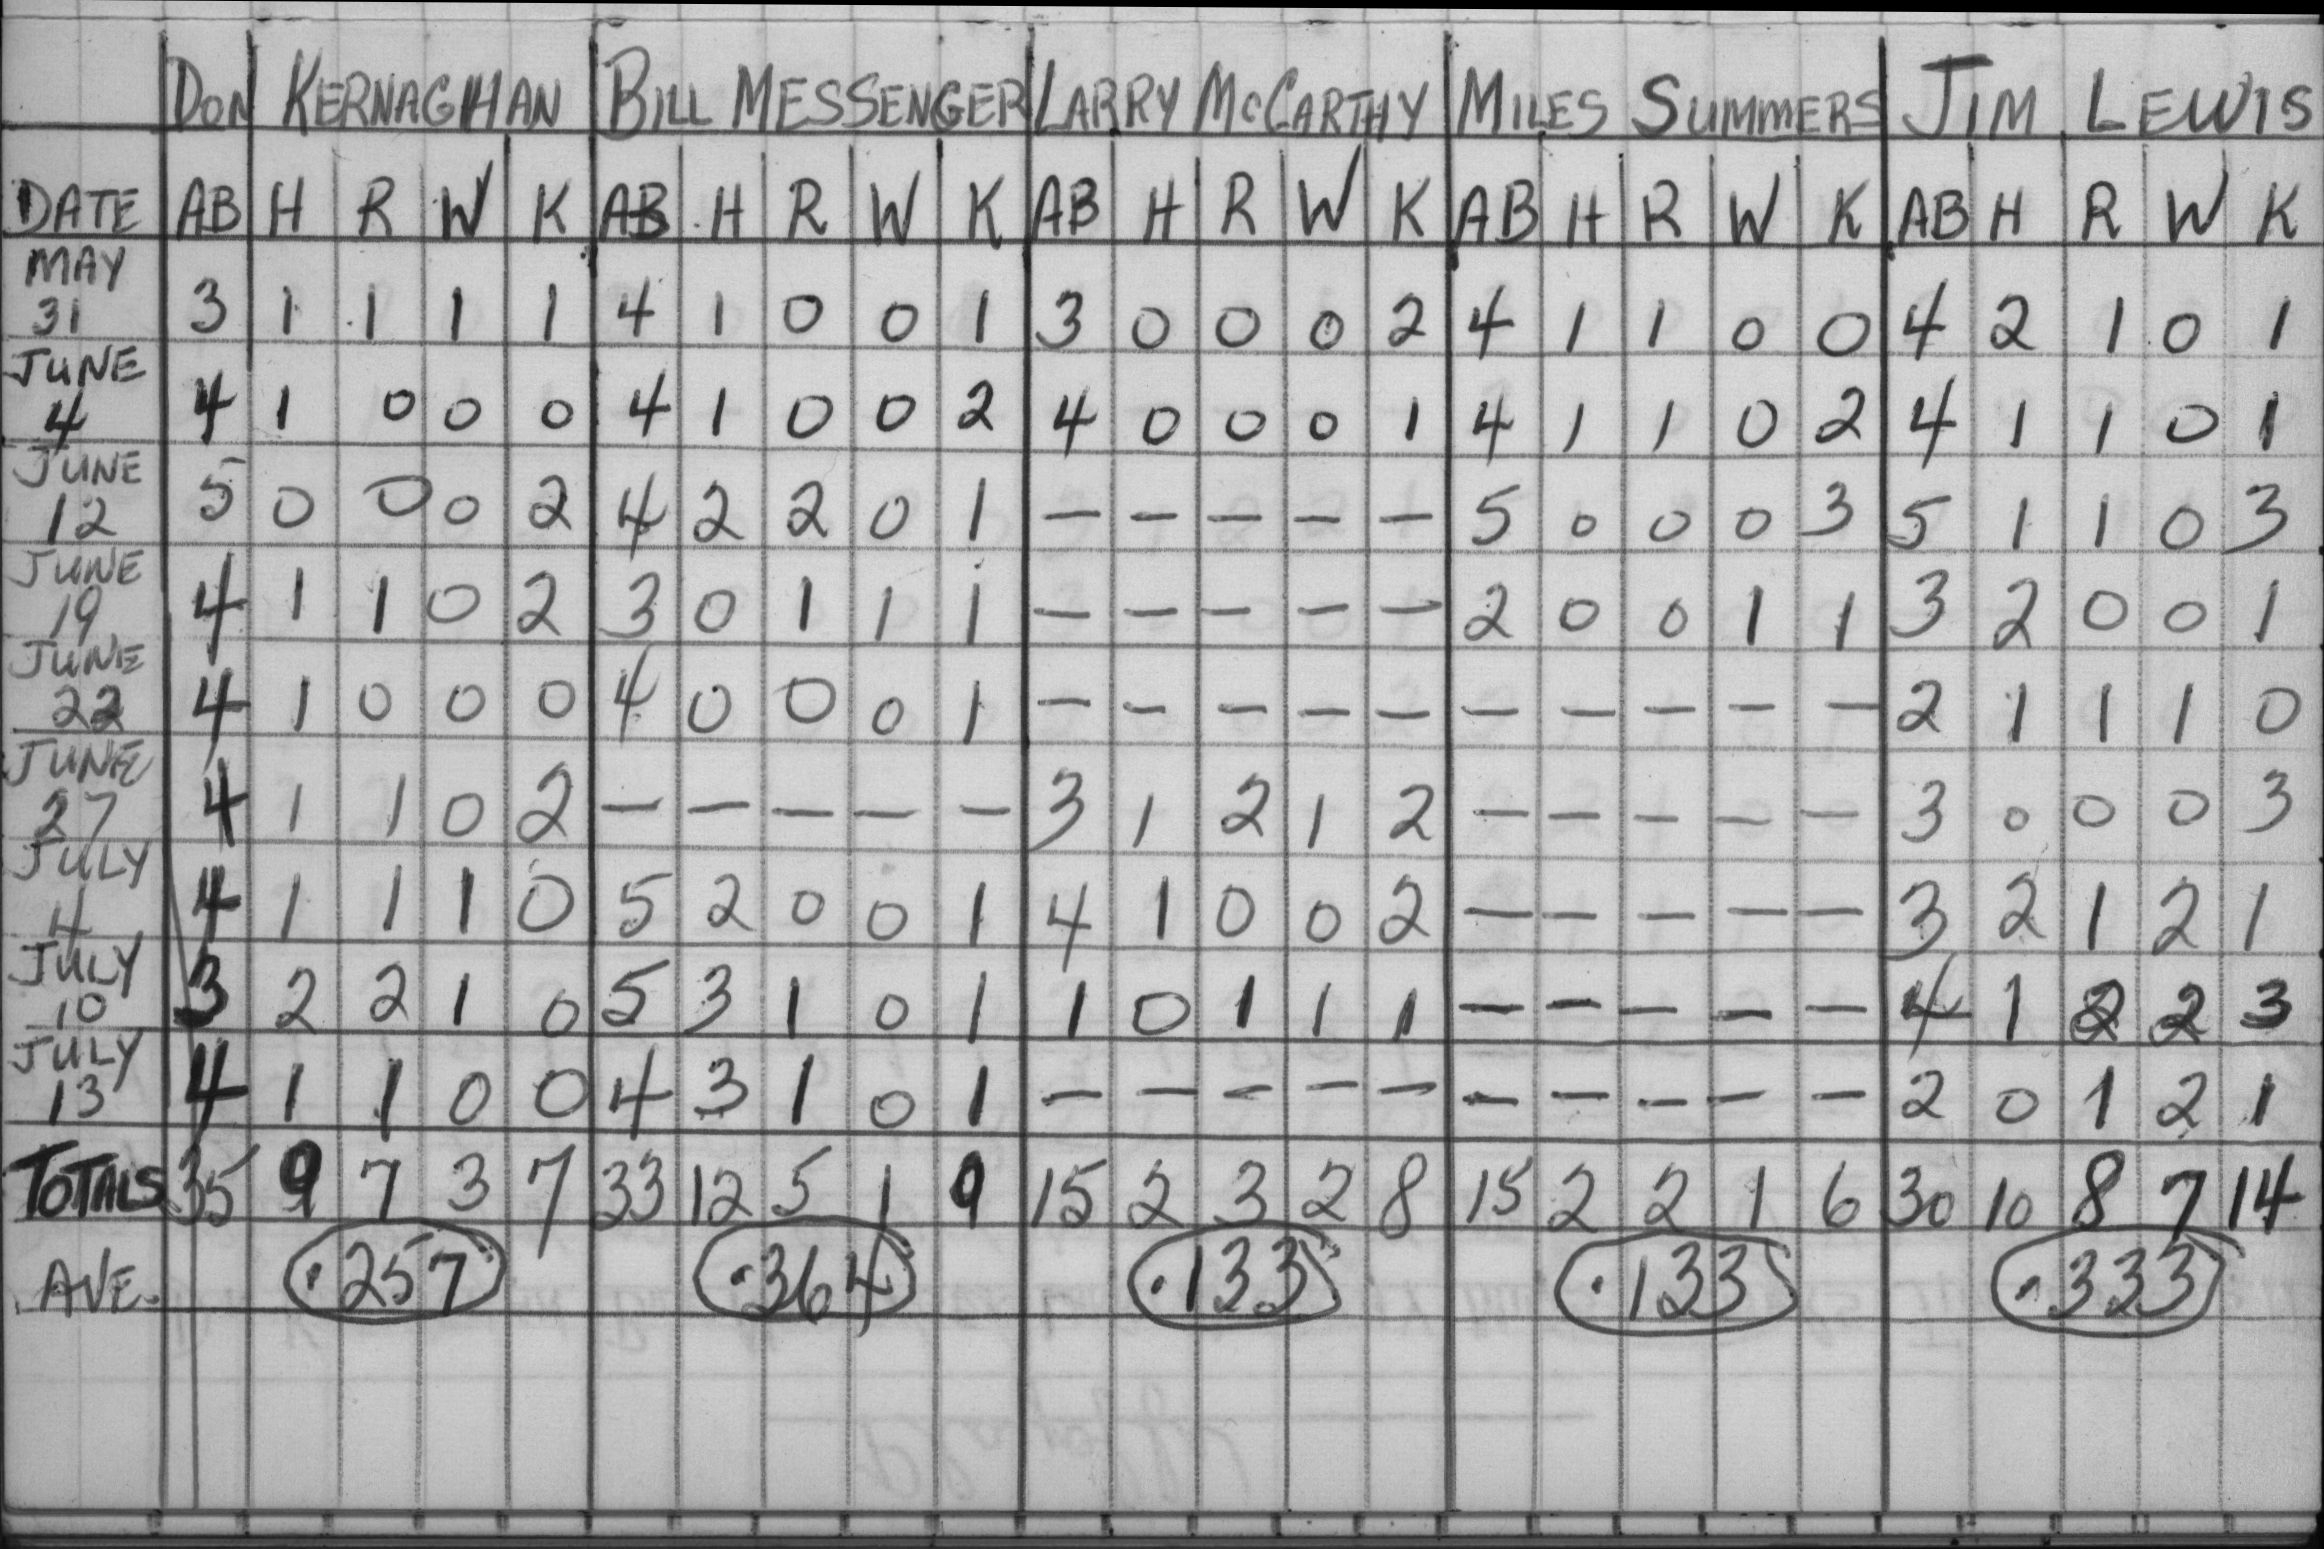 DON KERNAGHAN BILL MESSENGER LARRY McCARTHY MILES SUMMERS JIM LEWIS
DATE AB H R W K AB H R W K AB H R W K AB H R W K AB H R W K
MAY 31 3 1 1 1 1 4 1 0 0 1 3 0 0 0 2 4 1 1 0 0 4 2 1 0 1
JUNE 4 4 1 0 0 0 4 1 0 0 2 4 0 0 0 1 4 1 1 0 2 4 1 1 0 1
JUNE 12 5 0 0 0 2 4 2 2 0 1 – – – – – 5 0 0 0 3 5 1 1 0 3
JUNE 19 4 1 1 0 2 3 0 1 1 1 – – – – – 2 0 0 1 1 3 2 0 0 1
JUNE 22 4 1 0 0 0 4 0 0 0 1 – – – – – – – – – – 2 1 1 1 0
JUNE 27 4 1 1 0 2 – – – – – 3 1 2 1 2 – – – – – 3 0 0 0 3
JULY 4 4 1 1 1 0 5 2 0 0 1 4 1 0 0 2 – – – – – 3 2 1 2 1
JULY 10 3 2 2 1 0 5 3 1 0 1 1 0 1 1 1 – – – – – 4 1 2 2 3
JULY 13 4 1 1 0 0 4 3 1 0 1 – – – – – – – – – – 2 0 1 2 1
TOTALS 35 9 7 3 7 33 12 5 1 9 15 2 3 2 8 15 2 2 1 6 30 10 8 7 14
AVE. .257 .364 .133 .133 .333